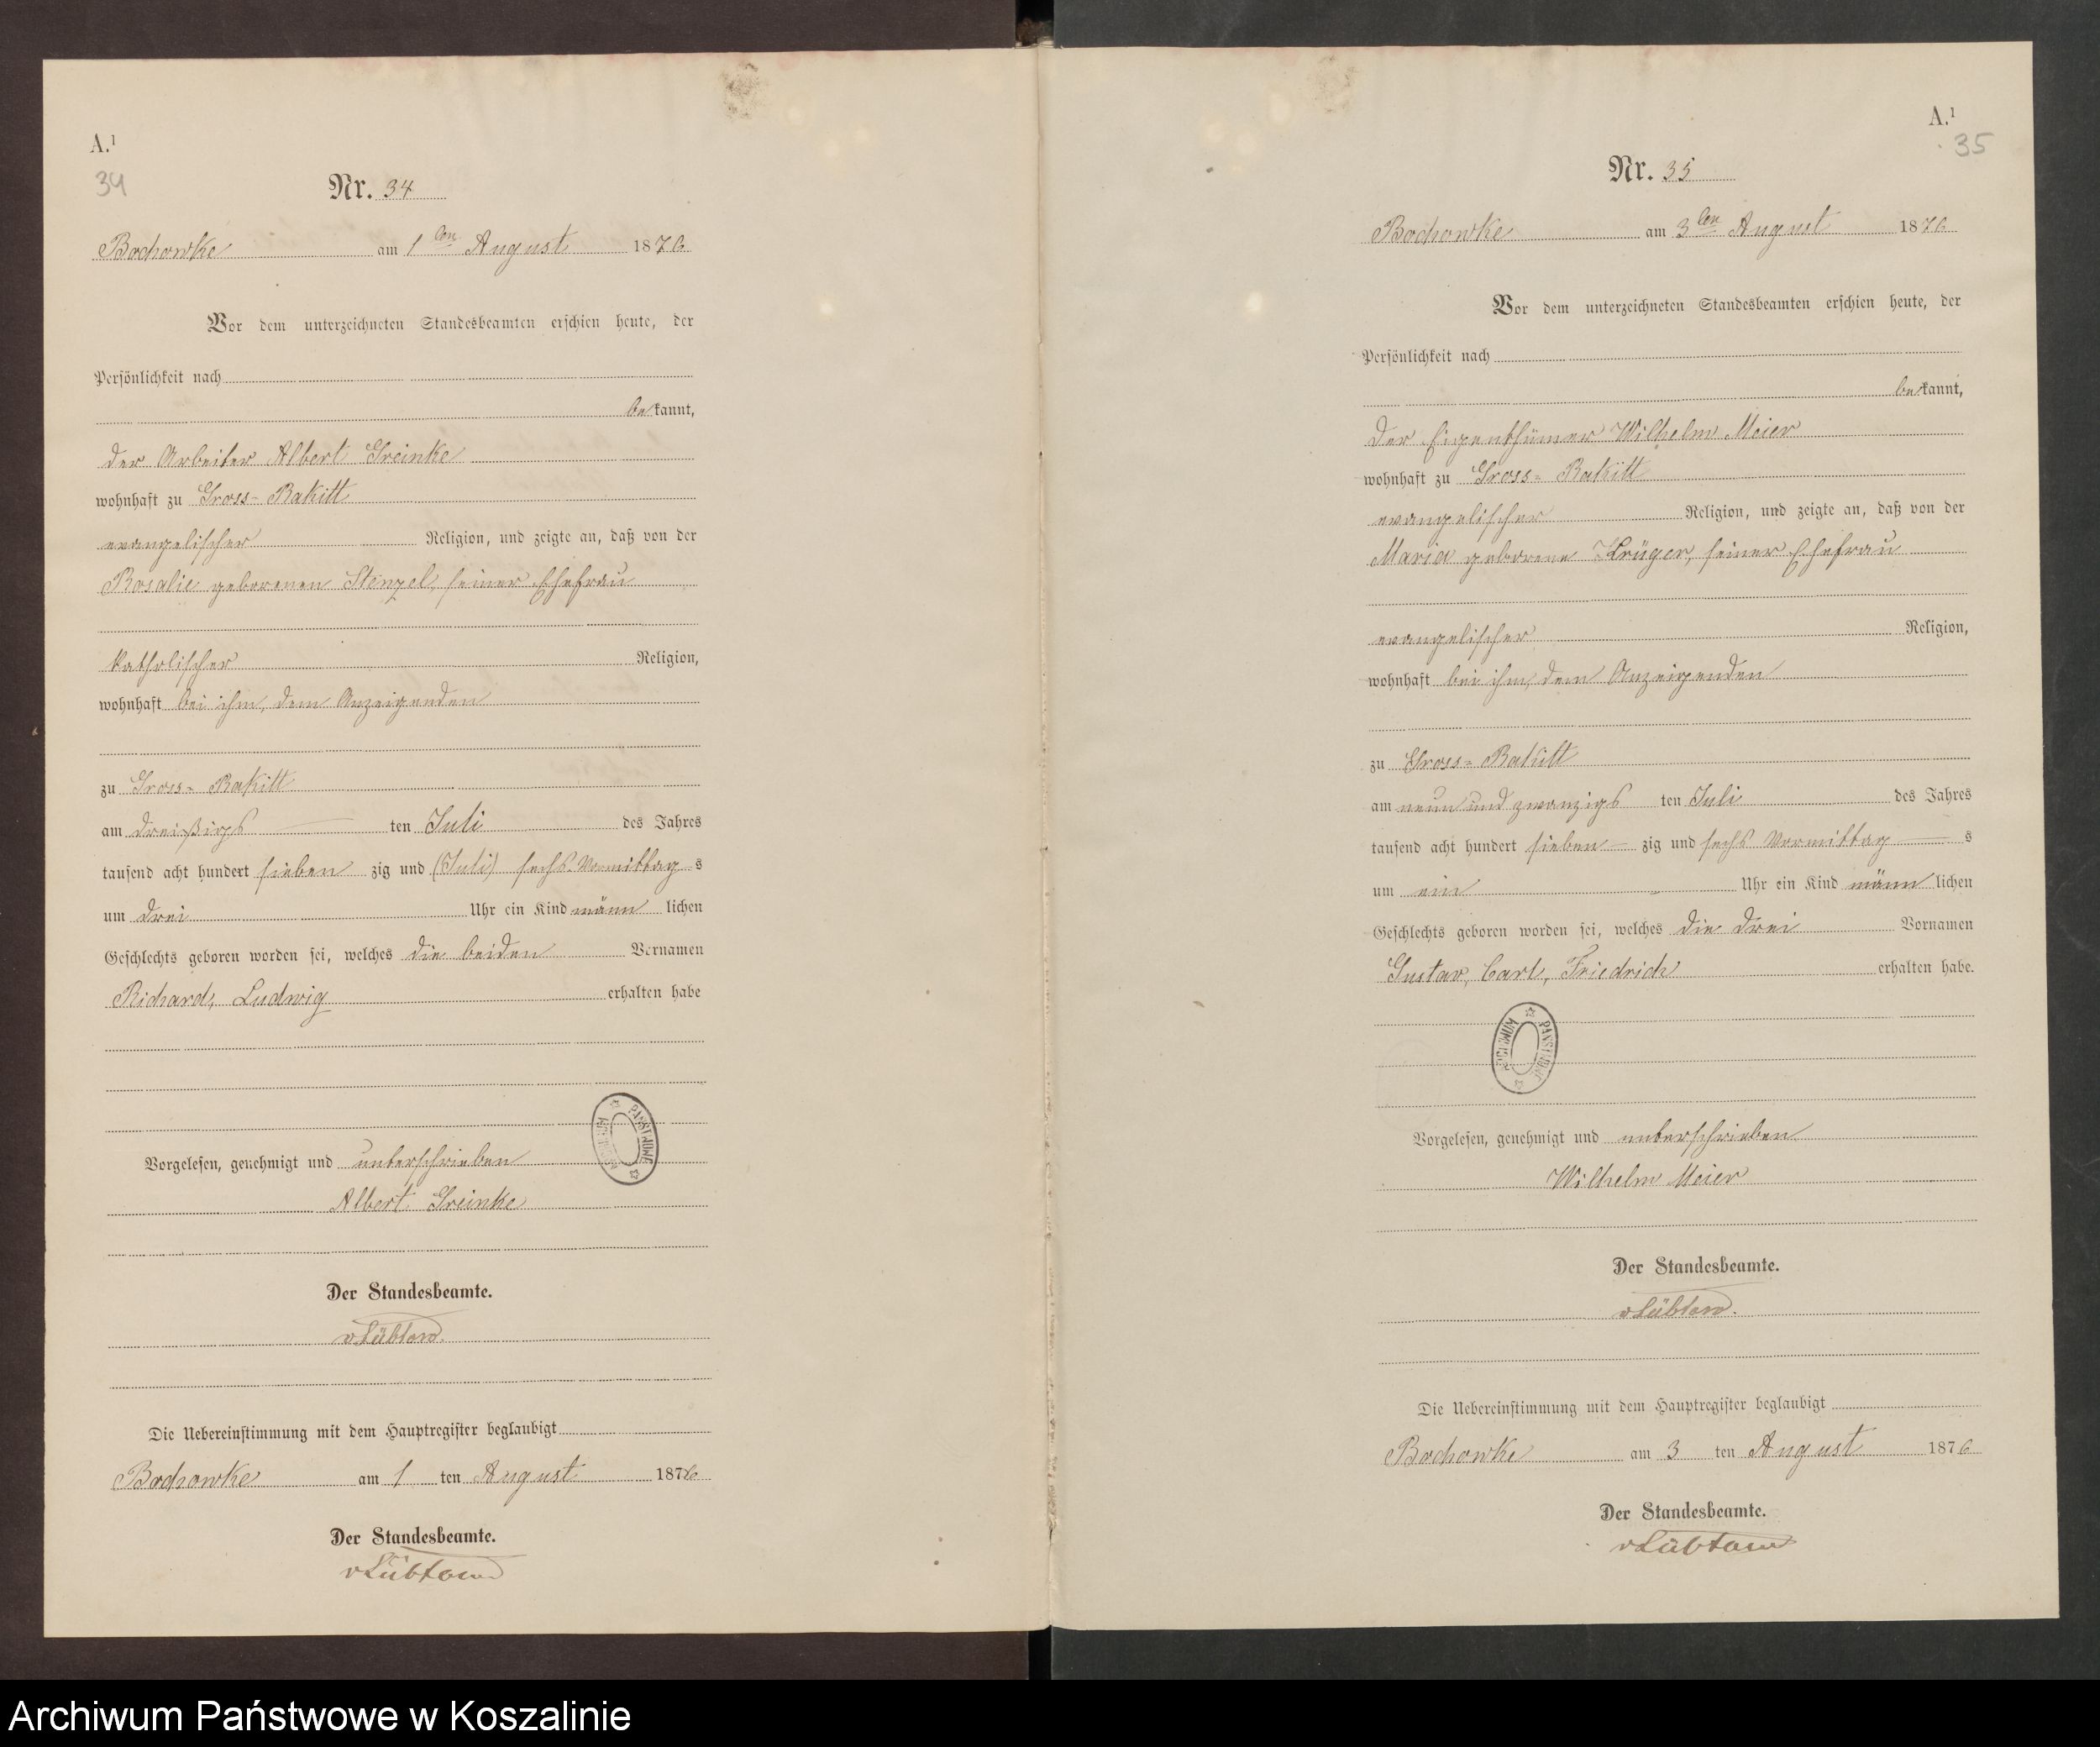 A.¹
34
Nr. 34
Bochowke am 1ten August 1876
Vor dem unterzeichneten Standesbeamten erschien heute, der
Persönlichkeit nach
bekannt,
der Arbeiter Albert Greinke
wohnhaft zu Gross-Rakitt
evangelischer Religion, und zeigte an, daß von der
Rosalie geborenen Stenzel, seiner Ehefrau
katholischer Religion,
wohnhaft bei ihm, dem Anzeigenden
zu Gross-Rakitt
am dreißigs ten Juli des Jahres
tausend acht hundert sieben zig und (Juli) sechs Vormittag s
um drei Uhr ein Kind männ lichen
Geschlechts geboren worden sei, welches die beiden Vornamen
Richard, Ludwig erhalten habe
ARCHIWUM PAŃSTWOWE
Vorgelesen, genehmigt und unterschrieben
Albert Greinke
Der Standesbeamte.
vLübtow.
Die Uebereinstimmung mit dem Hauptregister beglaubigt
Bochowke am 1 ten August 1876
Der Standesbeamte.
vLübtow
A.¹
35
Nr. 35
Bochowke am 3ten August 1876
Vor dem unterzeichneten Standesbeamten erschien heute, der
Persönlichkeit nach
bekannt,
der Eigenthümer Wilhelm Meier
wohnhaft zu Gross-Rakitt
evangelischer Religion, und zeigte an, daß von der
Maria geborene Krüger, seiner Ehefrau
evangelischer Religion,
wohnhaft bei ihm, dem Anzeigenden
zu Gross-Rakitt
am neun und zwanzigs ten Juli des Jahres
tausend acht hundert sieben zig und sechs Vormittag s
um ein Uhr ein Kind männ lichen
Geschlechts geboren worden sei, welches die drei Vornamen
Gustav, Carl, Friedrich erhalten habe.
ARCHIWUM PAŃSTWOWE
Vorgelesen, genehmigt und unterschrieben
Wilhelm Meier
Der Standesbeamte.
vLübtow.
Die Uebereinstimmung mit dem Hauptregister beglaubigt
Bochowke am 3 ten August 1876
Der Standesbeamte.
vLübtow
Archiwum Państwowe w Koszalinie